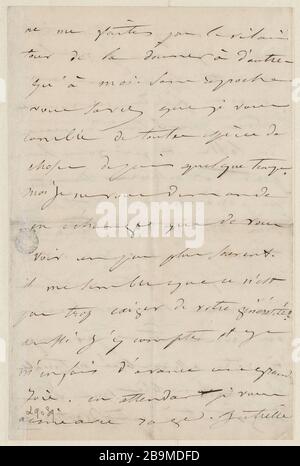 ne me faites pas le vilain
tour de la donner à d'autre
qu'à moi. Sans reproche
vous savez que je vous
comble de toutes espèce de
chose depuis quelque temps.
moi je ne vous demande
en échange que de vous
voir un peu plus souvent.
il me semble que ce n'est
pas trop exiger de votre générosité
aussi j'y compte et je
m'en fais d'avance une grande
joie. en attendant je vous
aime avec rage. Juliette
alamy
Image ID: 2B9MDFD
www.alamy.com